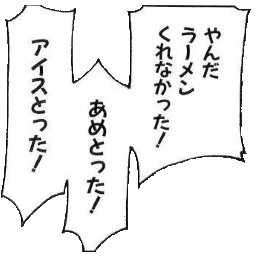 やんだ
ラーメン
くれなかった!
あめとった!
アイスとった!